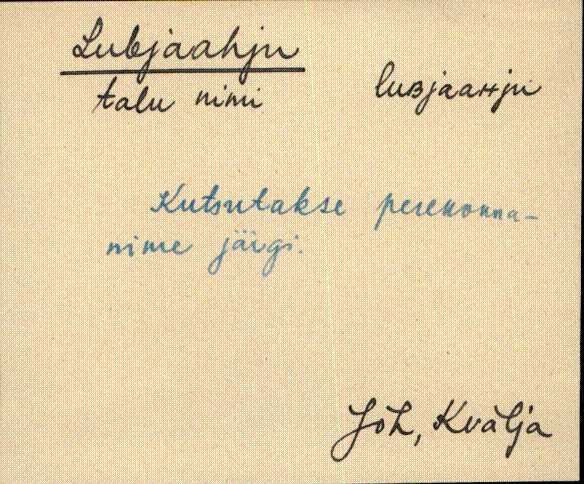 Lubjaahju
talu nimi luʙjaaʜju
Kutsutakse perekonna-
nime järgi.
Joh, Kvälja